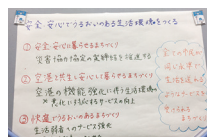 安全・安心でうるおいのある生活環境をつくる
① 安全・安心に暮らせるまちづくり
災害時の協定の実効性を検証する
② 空港と共生し安心して暮らせるまちづくり
空港の機能強化に伴う生活環境の
悪化に対応するサービスの向上
③ 快適でうるおいのあるまちづくり
生活弱者へのサービス強化
全ての市民が